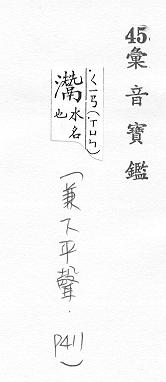 45.彙音寶鑑
ㄑㄧㄢ(ㄒㄩㄣ)
灊水名也
(兼下平聲. P411)